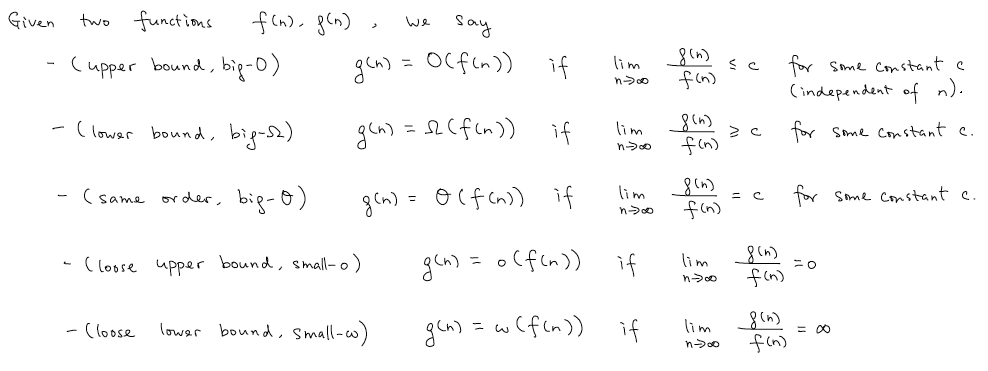 Given two functions f(n), g(n), we say
- (upper bound, big-O) g(n) = O(f(n)) if lim n→∞ g(n)/f(n) ≤ c for some constant c
(independent of n).
- (lower bound, big-Ω) g(n) = Ω(f(n)) if lim n→∞ g(n)/f(n) ≥ c for some constant c.
- (same order, big-θ) g(n) = θ(f(n)) if lim n→∞ g(n)/f(n) = c for some constant c.
- (loose upper bound, small-o) g(n) = o(f(n)) if lim n→∞ g(n)/f(n) = 0
- (loose lower bound, small-ω) g(n) = ω(f(n)) if lim n→∞ g(n)/f(n) = ∞